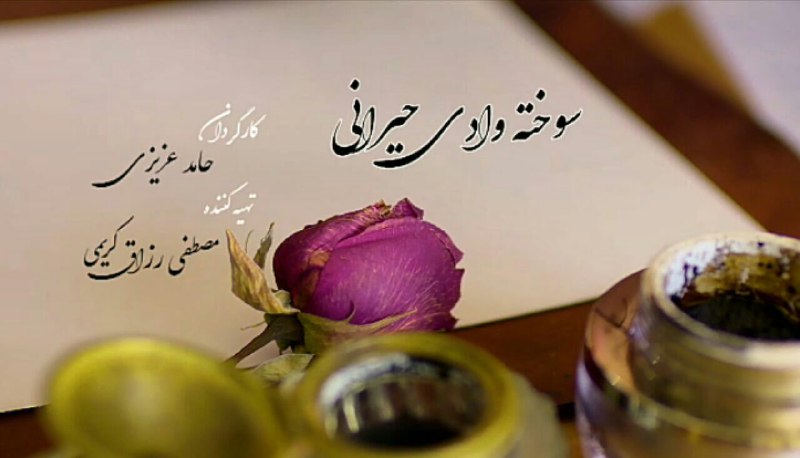 سوخته وادی حیرانی
کارگردان
حامد عزیزی
تهیه کننده
مصطفی رزاق کریمی